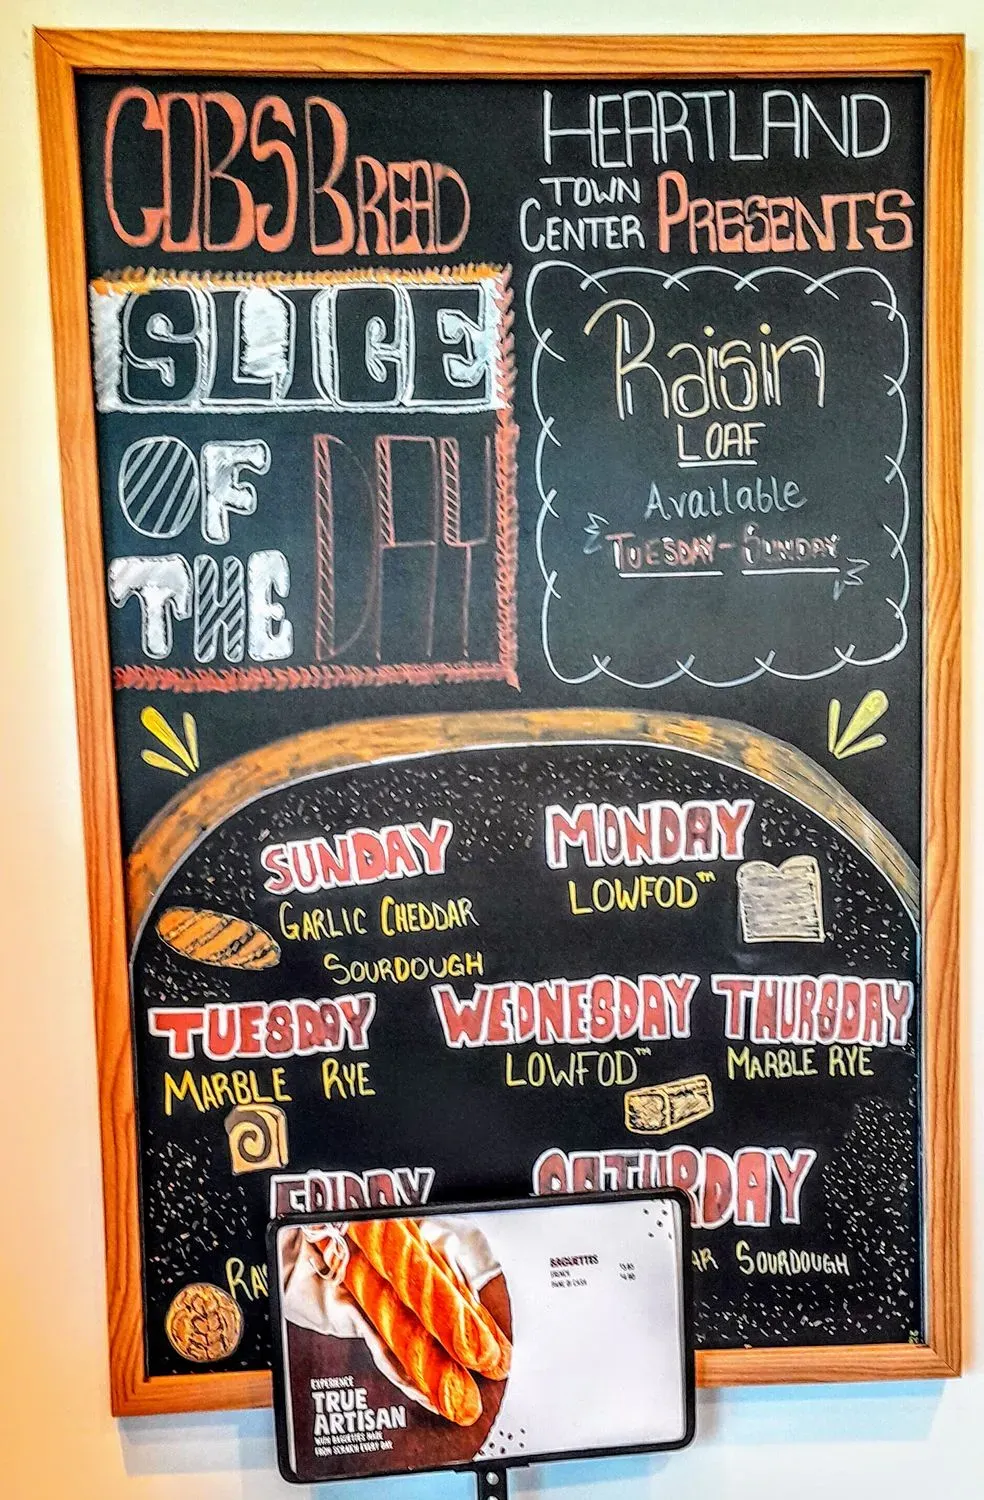 COBS BREAD
HEARTLAND
TOWN
CENTER PRESENTS
SLICE
OF
THE DAY
Raisin
LOAF
Available
TUESDAY - SUNDAY
SUNDAY
GARLIC CHEDDAR
SOURDOUGH
MONDAY
LOWFOD™
TUESDAY
MARBLE RYE
WEDNESDAY
LOWFOD™
THURSDAY
MARBLE RYE
FRIDAY
SATURDAY
SOURDOUGH
BAGUETTES
EXPERIENCE
TRUE
ARTISAN
WITH BAGUETTES MADE
FROM SCRATCH EVERY DAY